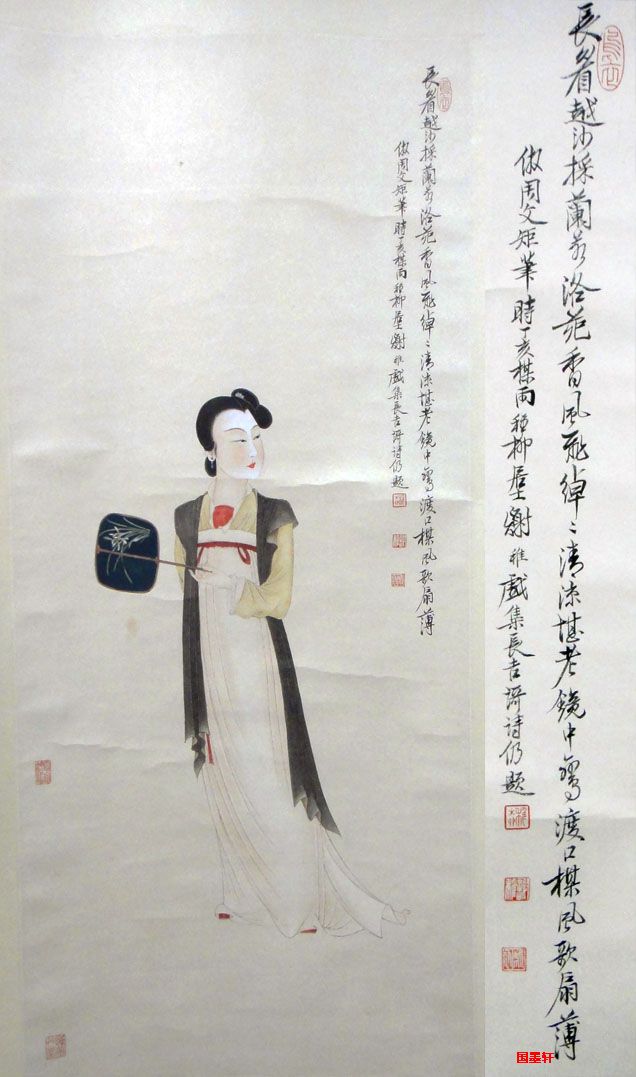 長眉越沙採蘭若洛苑香風飛綽〻清涼堪老鏡中鸞渡口楳風歌扇薄
倣周文矩筆時丁亥楳雨稚柳居士謝稚戲集長吉謌詩仍題
長眉越沙採蘭若洛苑香風飛綽〻清涼堪老鏡中鸞渡口楳風歌扇薄
倣周文矩筆時丁亥楳雨稚柳居士謝稚戲集長吉謌詩仍題
国墨轩